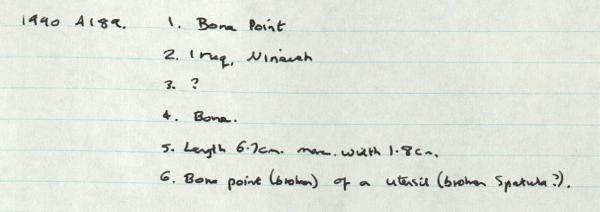 1990 A189. 1. Bone Point
2. Iraq, Nineveh
3. ?
4. Bone.
5. Length 6.7cm. max. width 1.8cm.
6. Bone point (broken) of a utensil (broken Spatula?).